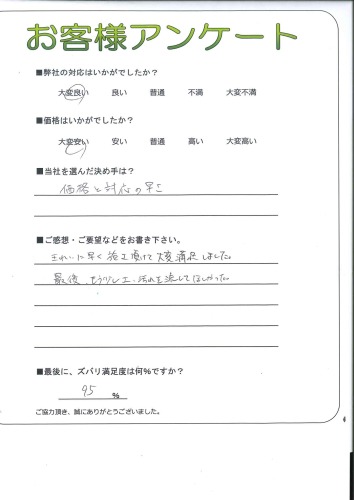 お客様アンケート
■弊社の対応はいかがでしたか?
大変良い 良い 普通 不満 大変不満
■価格はいかがでしたか?
大変安い 安い 普通 高い 大変高い
■当社を選んだ決め手は?
価格と対応の早さ
■ご感想・ご要望などをお書き下さい。
きれいに早く施工頂けて大変満足しました。
最後、もう少し 流してほしかった
■最後に、ズバリ満足度は何%ですか?
95 %
ご協力頂き、誠にありがとうございました。